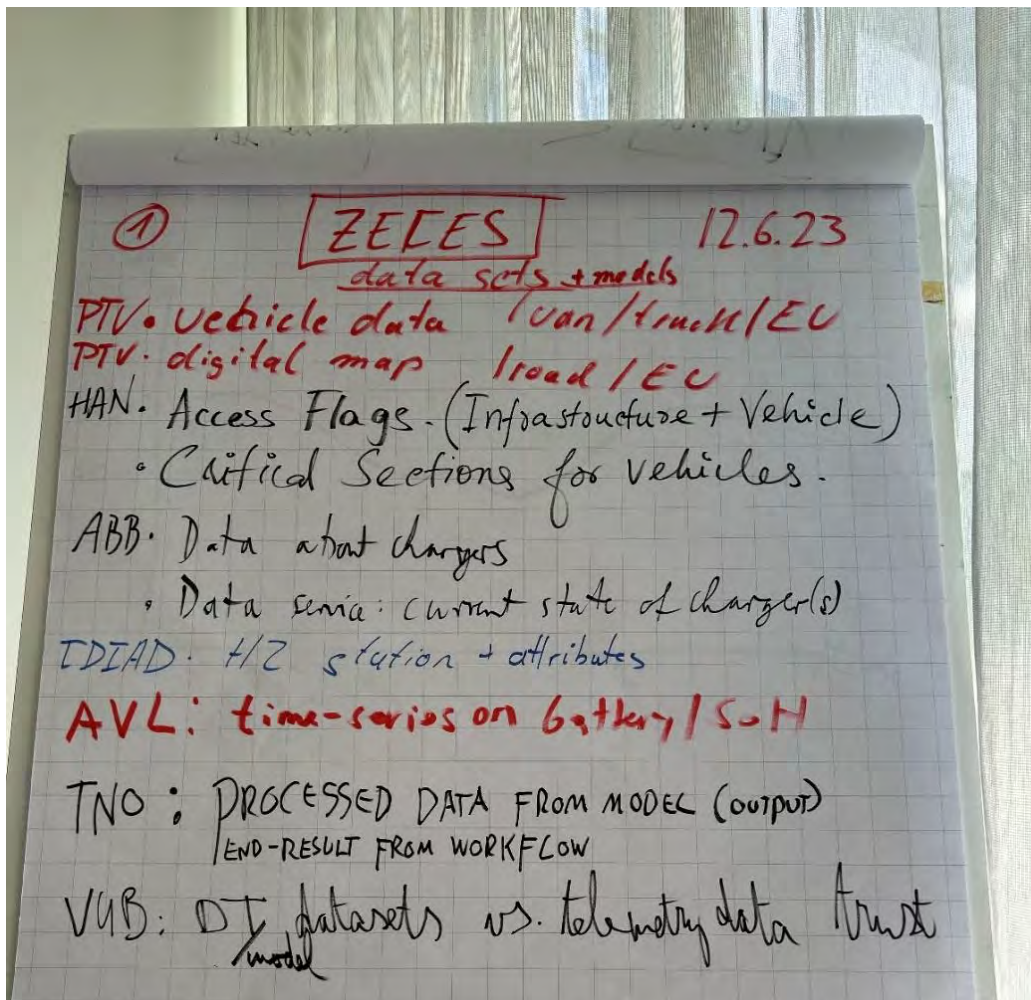 ① ZEFES 12.6.23
data sets + models
PTV. vehicle data /van/truck/EU
PTV. digital map /road/EU
HAN. Access Flags. (Infrastoucture + Vehicle)
• Critical Sections for vehicles.
ABB. Data about chargers
• Data service: current state of charger(s)
IDIAD. H2 station + attributes
AVL: time-series on battery/SoH
TNO: PROCESSED DATA FROM MODEL (OUTPUT)
END-RESULT FROM WORKFLOW
VUB: DT datasets vs. telemetry data trust
/model